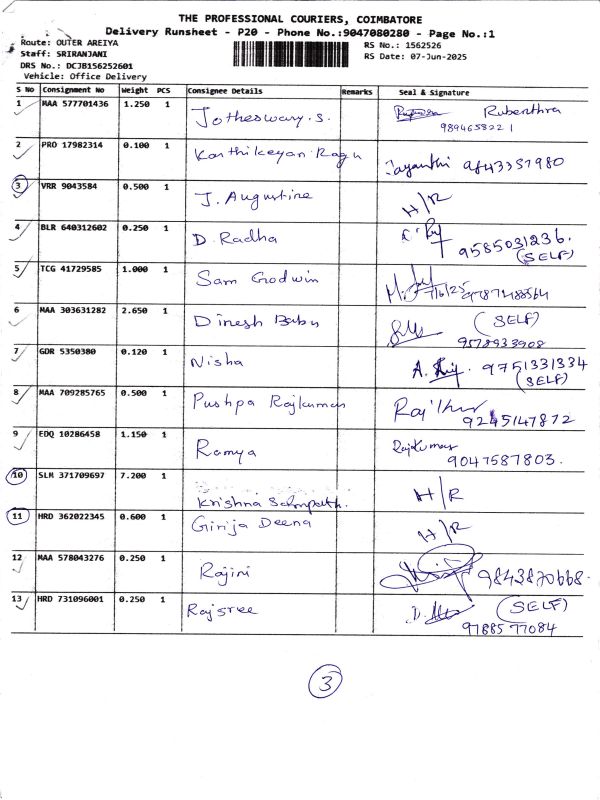 THE PROFESSIONAL COURIERS, COIMBATORE
Delivery Runsheet - P20 - Phone No.:9047080280 - Page No.:1
Route: OUTER AREIYA
RS No.: 1562526
Staff: SRIRANJANI
RS Date: 07-Jun-2025
DRS No.: DCJB156252601
Vehicle: Office Delivery
S No Consignment No Weight PCS Consignee Details Remarks Seal & Signature
1 MAA 577701436 1.250 1 Jotheswary.S. Rubenthra
9894658221
2 PRO 17982314 0.100 1 Karthikeyan Ragu Jayanthi 9843357980
3 VRR 9043584 0.500 1 J. Augustine H/R
4 BLR 640312602 0.250 1 D. Radha 9585031236.
(SELF)
5 TCG 41729585 1.000 1 Sam Godwin
6 MAA 303631282 2.650 1 Dinesh Babu (SELF)
9578933908
7 GDR 5350380 0.120 1 Nisha 9751331334
(SELF)
8 MAA 709285765 0.500 1 Pushpa Rajkumar
9245147872
9 EDQ 10286458 1.150 1 Ramya Rajkumar
9047587803.
10 SLM 371709697 7.200 1 Krishna Sampath. H/R
11 HRD 362022345 0.600 1 Girija Deena H/R
12 MAA 578043276 0.250 1 Rajini 9843870668.
13 HRD 731096001 0.250 1 Rajsree (SELF)
9788577084
3